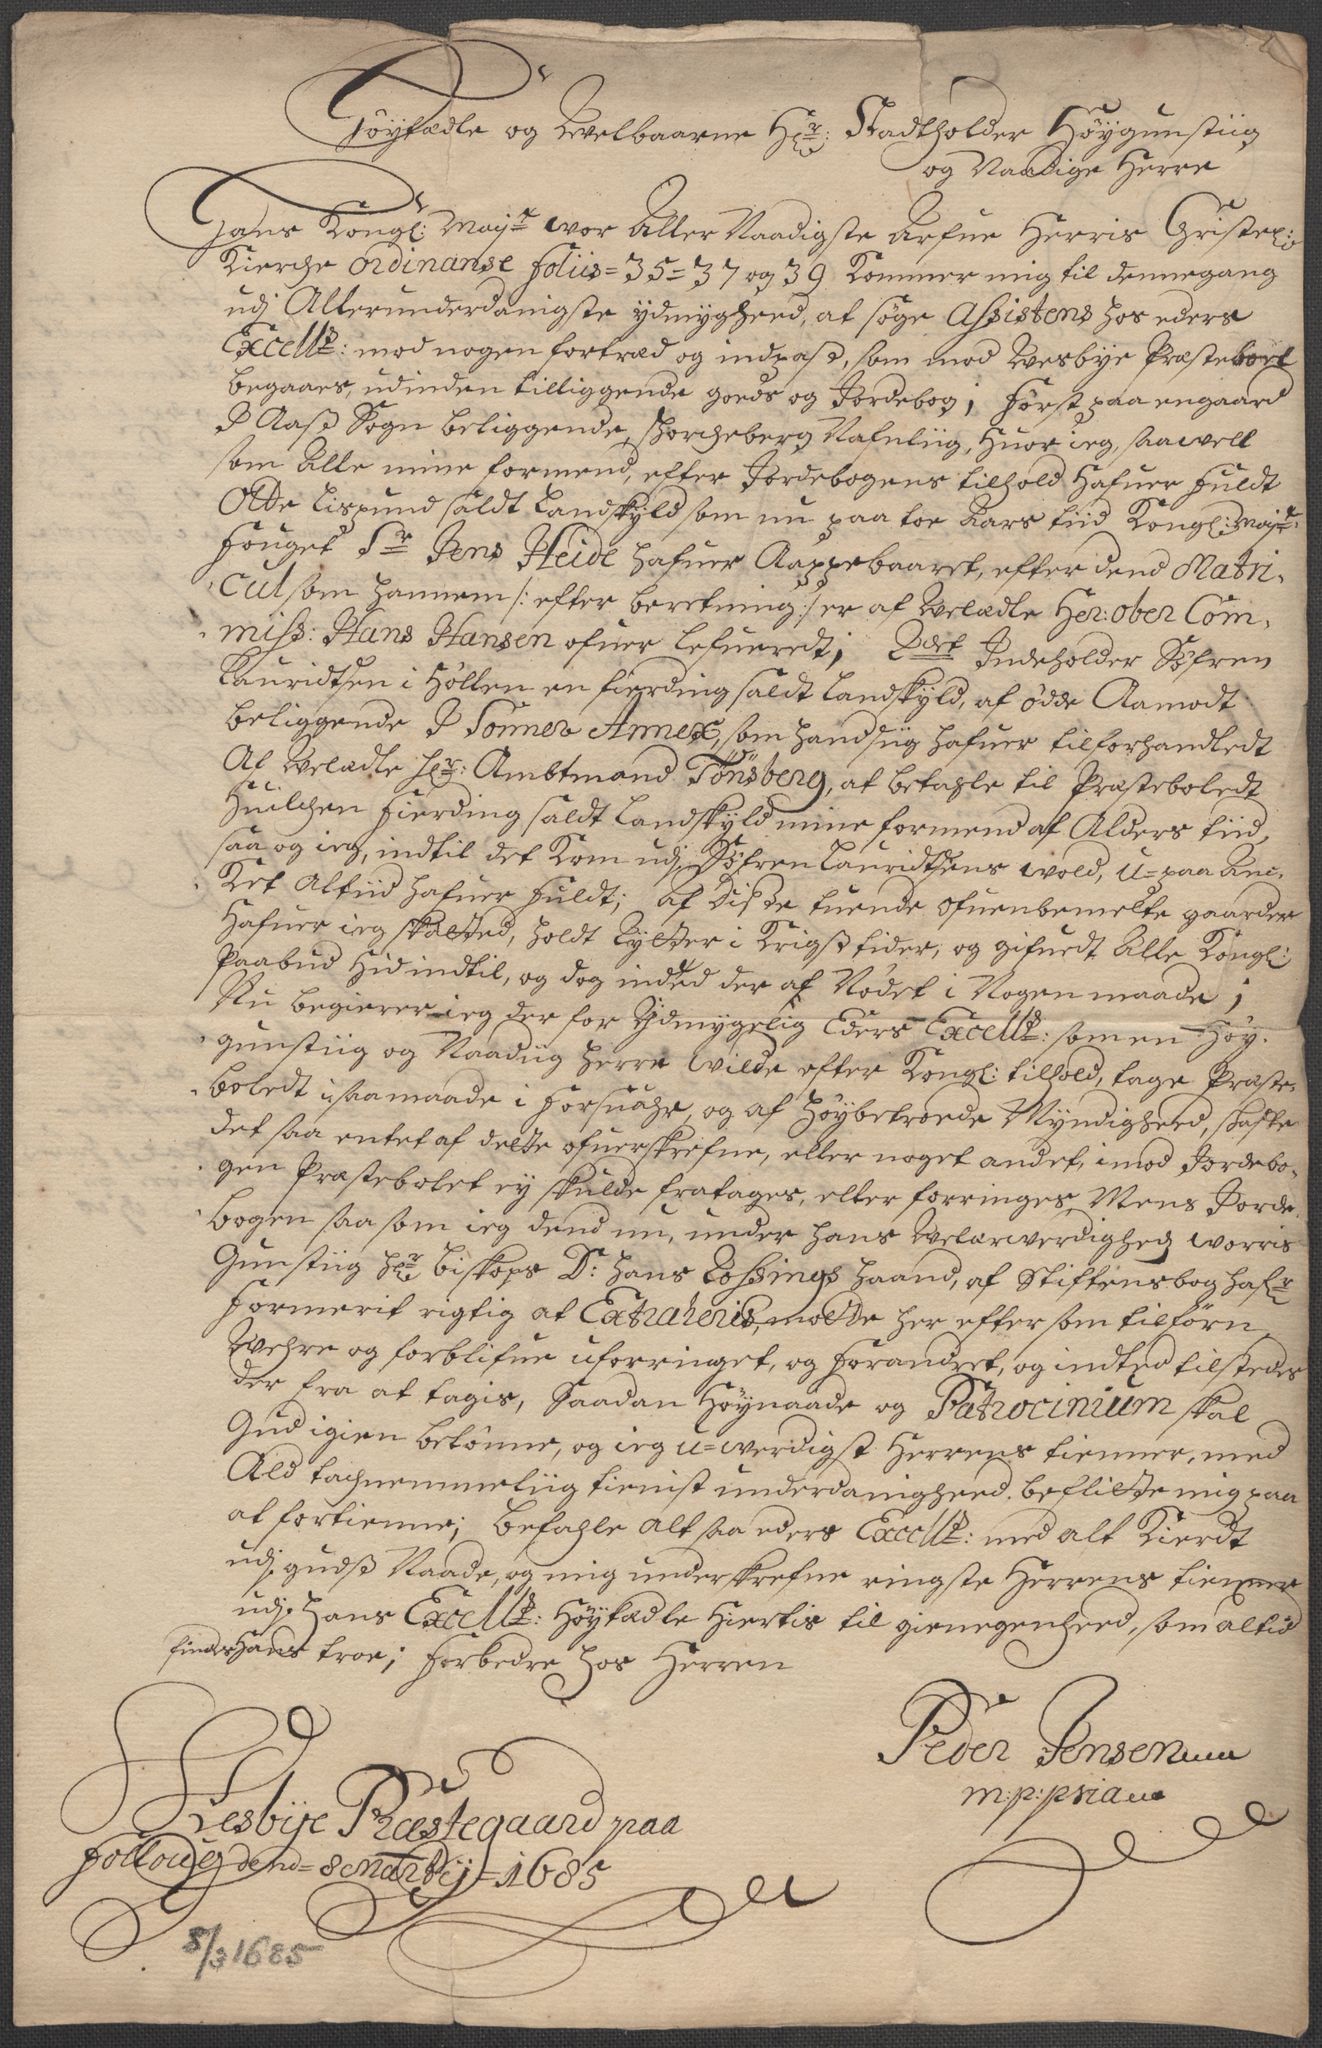 Höyædle og Welbaarne Hr: Stadtholder Höygunstiig
og Naadige Herre
Hans Kongl: Mayt: wor Aller Naadigste Arfue Herris Christel:
Kierche Ordinanse foliis = 35 = 37 og 39 Kommer mig til dennegang
udj Allerunderdanigste ydmygheed, at søge Assistens hos eders
Excell: mod nogen fortræd og indpass, som mod Wesbye Præsteboel
begaaes, udinden tilliggende goeds og Jordebog; Först paa en gaard
I Aass Sogn beliggende, Nafnliig, Huor ieg, saawell
som Alle mine formend, efter Jordebogens tilhold Hafuer fuldt
Otte Lispund saldt Landskyld som nu paa toe Aars tiid Kongl: Mayts:
fouget Sr Jens Heide hafuer Aappebaaret, efter dend Matri-
cul som hannem /: efter beretning :/ er af Welædle Her: ober Com-
miss: Hans Hansen ofuer lefueredt; Indeholder Söfren
Lauridtsen i Höllen en fierding saldt Landskyld, af ødde Aamodt
beliggende I Sonner Annex, som hand siig hafuer tilforhandledt
Af Welædle Hr: Ambtmand Tönsberg, at betahle til Præsteboledt
Huilchen fierding saldt Landskyld mine formend af Alders tiid,
saa og ieg, indtil det kom udj Söfren Lauridtsens wold, u=paa An-
ket altiid hafuer fuldt; af disse tuende ofuenbemelte gaarder
Hafuer ieg skatted, holdt Rytter i Krigss tider, og gifuedt Alle Kongl:
Paabud hid indtil, og dog indted der af Nödet i Nogen maade;
Nu begierer ieg der for Ydmygelig Eders Excell: som en Höy-
gunstiig og Naadiig Herre wilde efter Kongl: tilhold, tage Præste-
boledt i saa maade i forsuahr, og af höybetroede Myndigheed, skaffe
det saa entet af dette ofuerskrefne, eller noget andet, imod Jordebo-
gen Præstebolet ey skulde fratages, eller forringes, Mens Jorde-
bogen saa som ieg dend nu, under hans Welærwerdighed worris
Gunstiig Hr Biskops D: Hans Rossings haand, af Stiftensbog hafr
formerit rigtig at Extraheris, motte her efter som tilförn
Wehre og forblifue uforringet, og forandret, og indted tilstedes
der fra at tagis, Saadan Höynaade og Patrocinium skal
Gud igien belönne, og ieg u=werdigst Herrens tienner, med
Ald tachnemmeliig tienist underdanigheed. beflitte mig paa
at fortienne; befahle alt saa eders Excell: med alt Kierdt
udj gudss Naade, og mig underskrefne ringste Herrens tienner
udj Hans Excell: Höyædle Hiertis til gienegenheed, som altid
findes hans troe; forbedre hos Herren
Peder Jensen
m:p:pria
Wesbÿe Præstegaard paa
follow dend = 8 Martij = 1685
8/3 1685